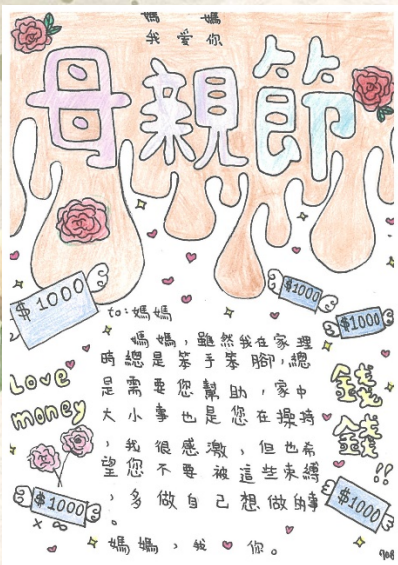 媽 媽
我愛你
母親節
$1000
$1000
$1000
to:媽媽
媽媽，雖然我在家裡
時總是笨手笨腳，總
是需要您幫助，家中
大小事也是您在操持
，我很感激，但也希
望您不要被這些束縛
，多做自己想做的事
。
媽媽，我 你。
Love
money
錢
錢
!!
$1000
x ∞
$1000
708